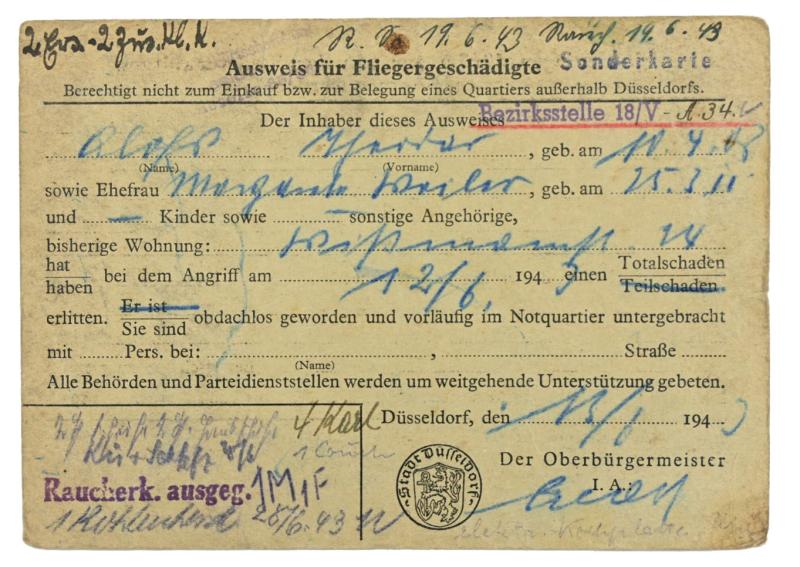 2 Ers - 2 Zus. Kl. K. 19.6.43 19.6.43
Ausweis für Fliegergeschädigte Sonderkarte
Berechtigt nicht zum Einkauf bzw. zur Belegung eines Quartiers außerhalb Düsseldorfs.
Bezirksstelle 18/V - A. 34.
Der Inhaber dieses Ausweises
Theodor, geb. am 10.4.
(Name) (Vorname)
sowie Ehefrau Margarete Weiler, geb. am 25.3.11
und — Kinder sowie sonstige Angehörige,
bisherige Wohnung: Wißmannst. 24
hat
haben bei dem Angriff am 12/6. 1943 einen Totalschaden
Teilschaden
erlitten. Er ist
Sie sind obdachlos geworden und vorläufig im Notquartier untergebracht
mit Pers. bei: , Straße
(Name)
Alle Behörden und Parteidienststellen werden um weitgehende Unterstützung gebeten.
4 Karl
1 Couch
Düsseldorf, den 13/6 194
Der Oberbürgermeister
I. A.:
Stadt Düsseldorf
Raucherk. ausgeg. 1M 1F
1 Kohlenherd 28/6.43
elektr. Kochplatte